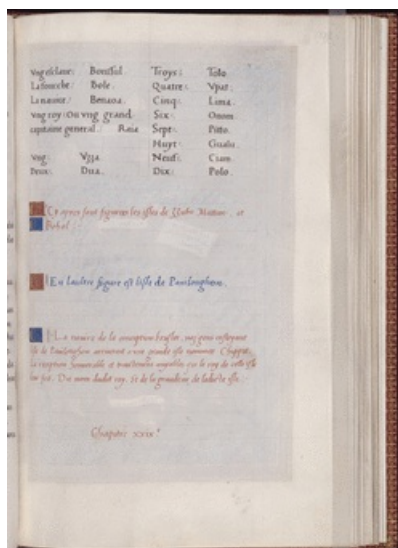 Vng esclaue: Bonsful. Troys: Tolo
La fourche: Bole. Quatre: Vpat:
La nauire: Benaoa. Cinq: Lima.
vng roy: Ou vng grand Six: Onom.
capitaine general. Raia Sept: Pitto.
Huyt: Gualu.
Vng: Vzza. Neuf: Ciam.
Deux: Dua. Dix: Polo.
Cy apres sont figurees les isles de Zzubu Mattan et
Bohol:
En laultre figure est lisle de Panilonghon.
La nauire de la conception bruslee, noz gens
isle de Panilonghon arriuerent a vne grande isle nommee Chippit,
la reception et traictement le roy de ceste isle
leur fist. Du nom dudit roy. Et de la grandeur de ladicte isle.
Chapitre xxix.